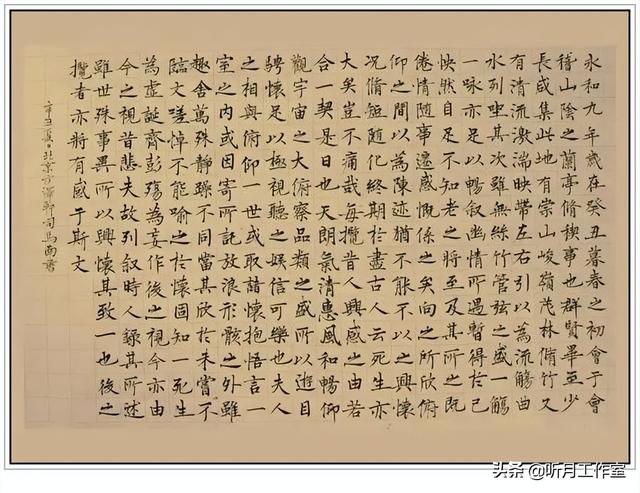 永和九年歲在癸丑暮春之初會于會
稽山陰之蘭亭脩稧事也群賢畢至少
長咸集此地有崇山峻嶺茂林脩竹又
有清流激湍映帶左右引以為流觴曲
水列坐其次雖無絲竹管弦之盛一觴
一咏亦足以暢叙幽情所遇暫得於己
快然自足不知老之將至及其所之既
倦情隨事遷感慨係之矣向之所欣俯
仰之間以為陳迹猶不能不以之興懷
况脩短随化終期於盡古人云死生亦
大矣豈不痛哉每攬昔人興感之由若
合一契是日也天朗氣清惠風和暢仰
觀宇宙之大俯察品類之盛所以遊目
騁懷足以極視聽之娛信可樂也夫人
之相與俯仰一世或取諸懷抱悟言一
室之内或因寄所託放浪形骸之外雖
趣舍萬殊静躁不同當其欣於未嘗不
臨文嗟悼不能喻之於懷固知一死生
為虛誕齊彭殤為妄作後之視今亦由
今之視昔悲夫故列叙時人錄其所述
雖世殊事異所以興懷其致一也後之
攬者亦將有感于斯文
辛丑夏日北京司馬南書
头条 @听月工作室